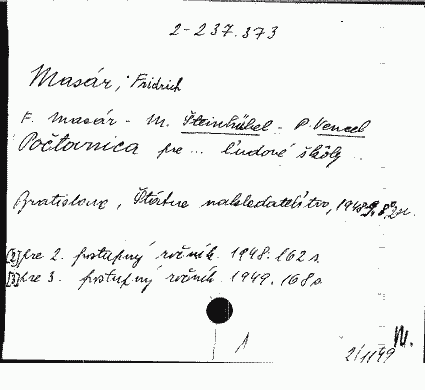 2-237.373
Masár, Fridrich
F. Masár - M. Steinhübel - P. Vencel
Počtovnica pre ... ľudové školy
Bratislava, Štátne nakladateľstvo, 1948
[2] pre 2. postupný ročník. 1948. 162 s.
[3] pre 3. postupný ročník. 1949. 168 s.
1
N.
2/1149